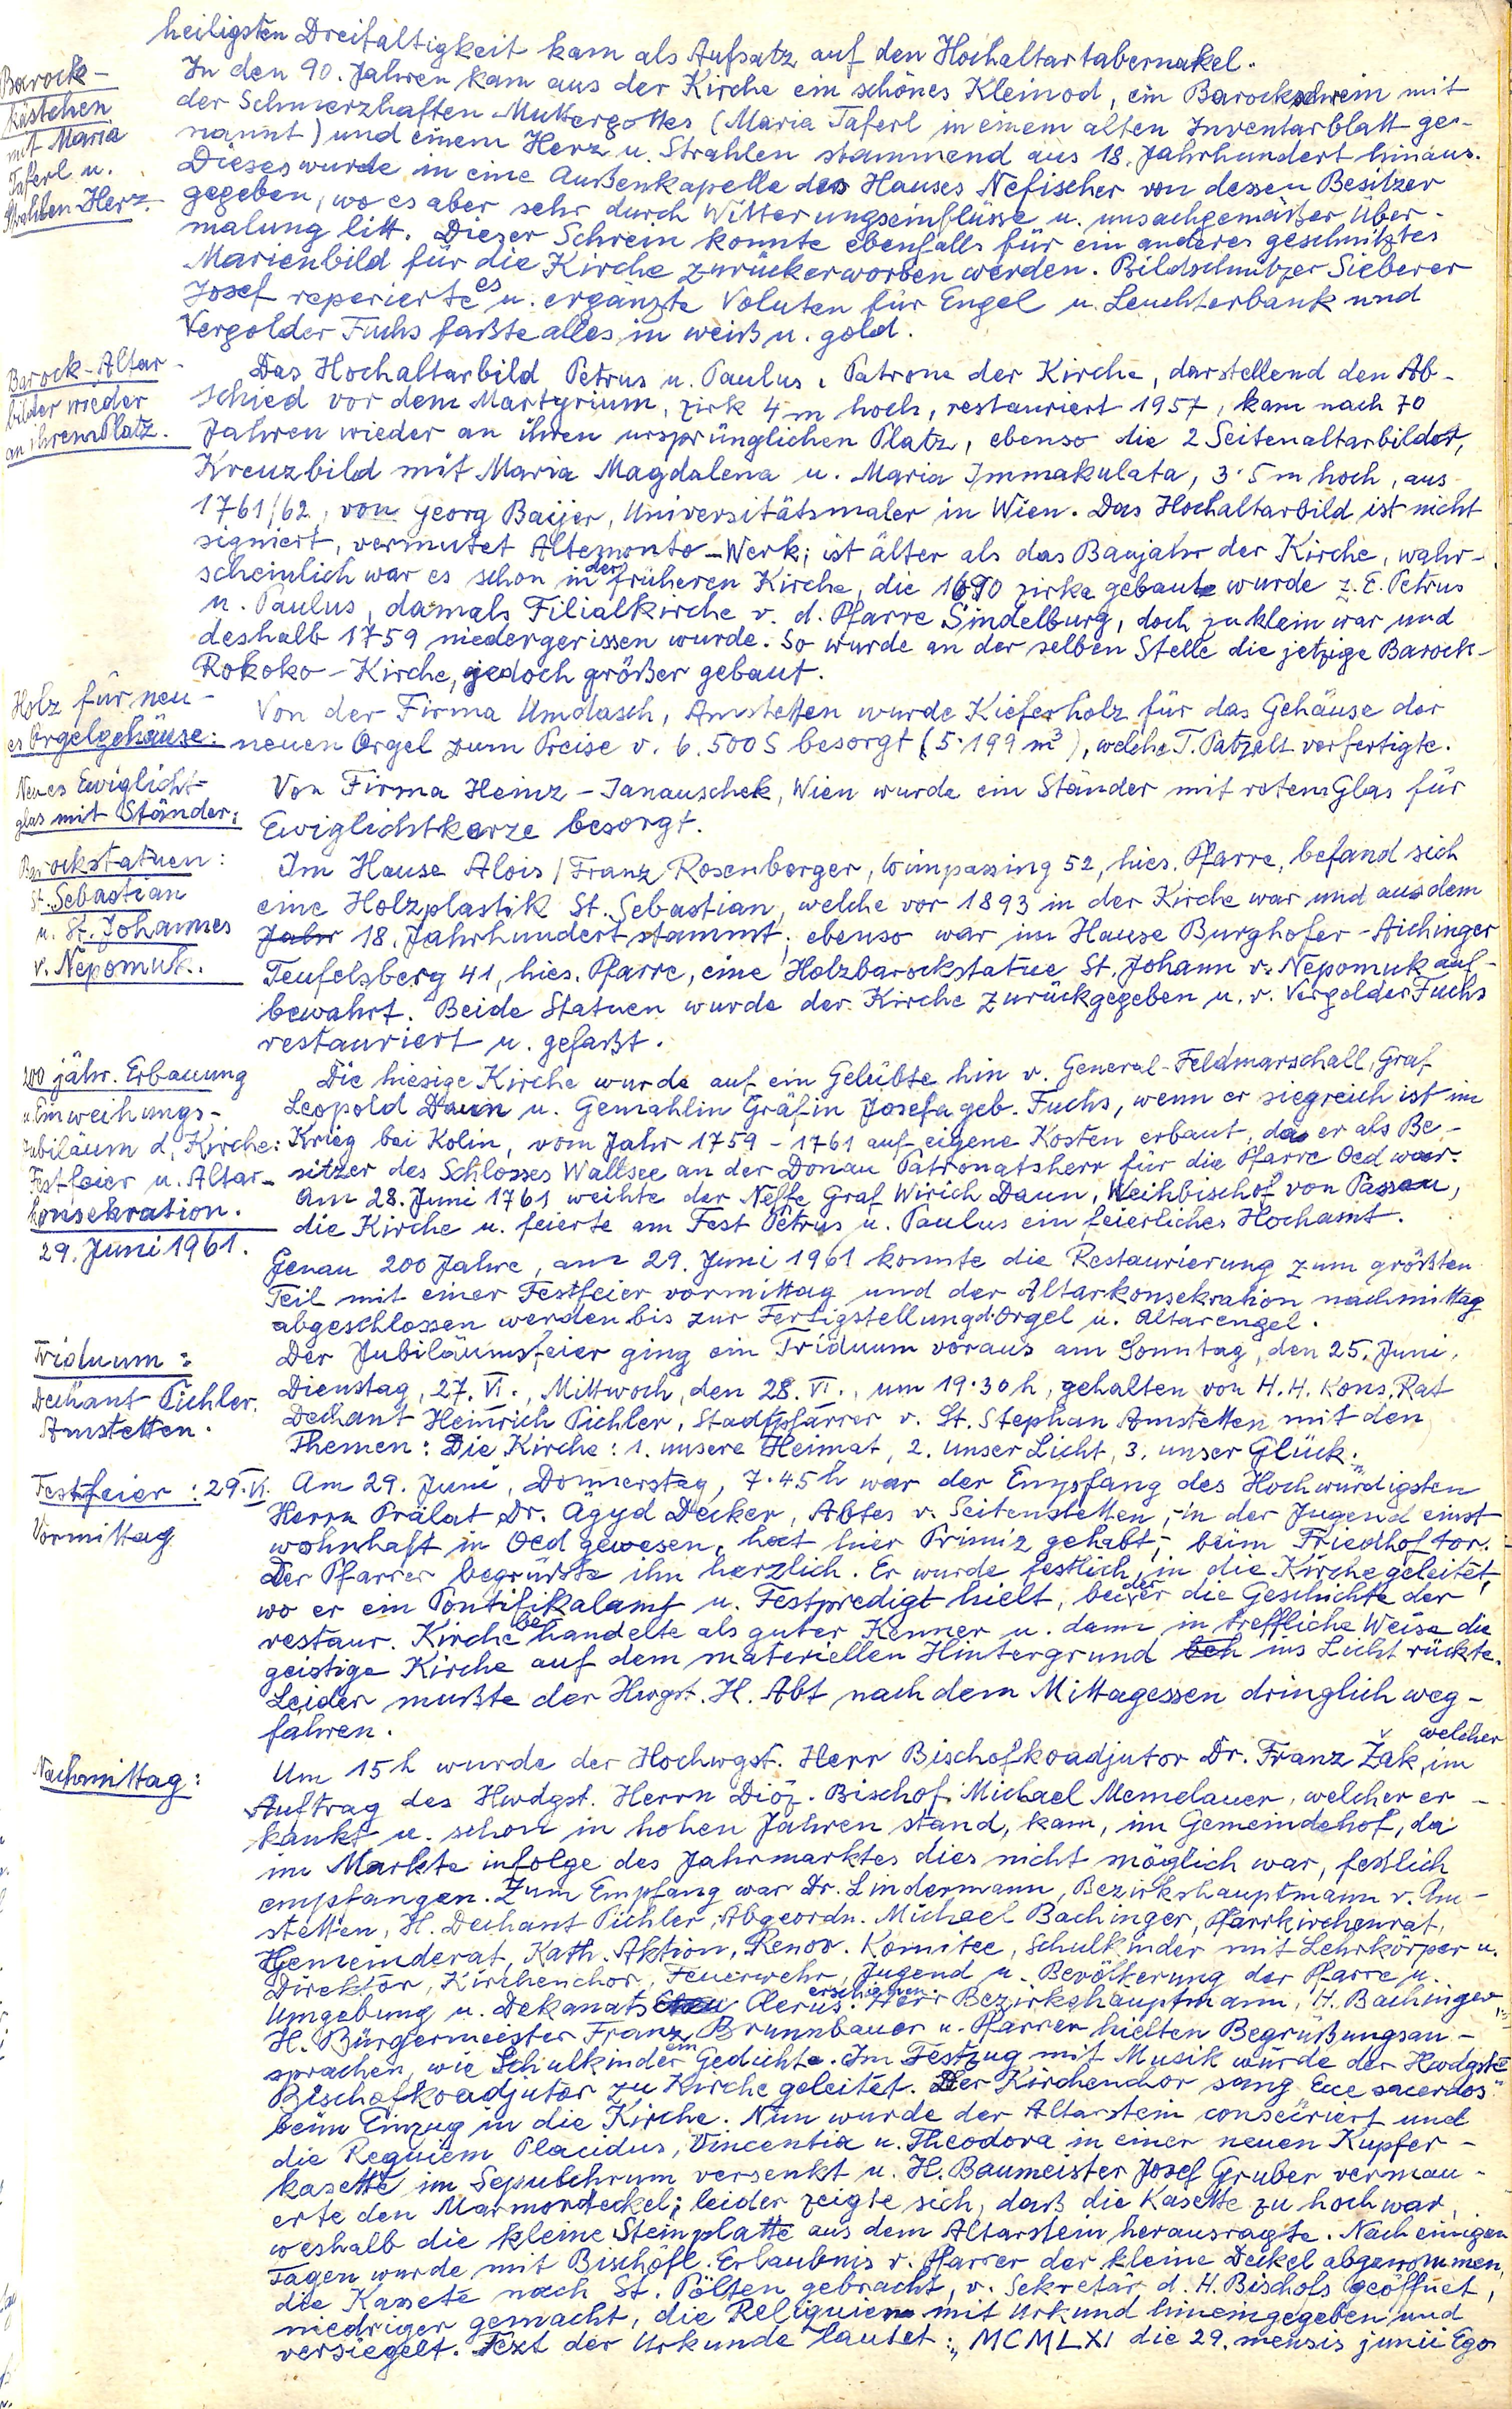 heiligsten Dreifaltigkeit kam als Aufsatz auf den Hochaltartabernakel.
Barock-
kästchen
mit Maria
Taferl u.
Strahlen Herz.
In den 90. Jahren kam aus der Kirche ein schönes Kleinod, ein Barockschrein mit
der Schmerzhaften Muttergottes (Maria Taferl in einem alten Inventarblatt ge-
nannt) und einem Herz u. Strahlen stammend aus 18. Jahrhundert hinaus.
Dieses wurde in eine Außenkapelle des Hauses Nefischer von dessen Besitzer
gegeben, wo es aber sehr durch Witterungseinflüsse u. unsachgemäßer Über-
malung litt. Dieser Schrein konnte ebenfalls für ein anderes geschnitztes
Marienbild für die Kirche zurückerworben werden. Bildschnitzer Sieberer
Josef reperierte es u. ergänzte Voluten für Engel u. Leuchterbank und
Vergolder Fuchs faßte alles in weiß u. gold.
Barock-Altar-
bilder wieder
an ihrem Platz.
Das Hochaltarbild Petrus u. Paulus, Patrone der Kirche, darstellend den Ab-
schied vor dem Martyrium, zirk 4 m hoch, restauriert 1957, kam nach 70
Jahren wieder an ihren ursprünglichen Platz, ebenso die 2 Seitenaltarbilder,
Kreuzbild mit Maria Magdalena u. Maria Immakulata, 3·5 m hoch, aus
1761/62, von Georg Baijer, Universitätsmaler in Wien. Das Hochaltarbild ist nicht
signiert, vermutet Altemonto-Werk; ist älter als das Baujahr der Kirche, wahr-
scheinlich war es schon in der früheren Kirche, die 1690 zirka gebaut wurde z. E. Petrus
u. Paulus, damals Filialkirche v. d. Pfarre Sindelburg, doch zu klein war und
deshalb 1759 niedergerissen wurde. So wurde an der selben Stelle die jetzige Barock-
Rokoko-Kirche, jedoch größer gebaut.
Holz für neu-
es Orgelgehäuse:
Von der Firma Umdasch, Amstetten wurde Kieferholz für das Gehäuse der
neuen Orgel zum Preise v. 6.500 S besorgt (5·199 m³), welche T. Patzelt verfertigte.
Neues Ewiglicht-
glas mit Ständer:
Von Firma Heinz-Janauschek, Wien wurde ein Ständer mit rotem Glas für
Ewiglichtkerze besorgt.
Barockstatuen:
St. Sebastian
u. St. Johannes
v. Nepomuk.
Im Hause Alois/Franz Rosenberger, Wimpassing 52, hies. Pfarre, befand sich
eine Holzplastik St. Sebastian, welche vor 1893 in der Kirche war und aus dem
Jahr 18. Jahrhundert stammt; ebenso war im Hause Burghofer-Aichinger
Teufelsberg 41, hies. Pfarre, eine Holzbarockstatue St. Johann v. Nepomuk auf-
bewahrt. Beide Statuen wurde der Kirche zurückgegeben u. v. Vergolder Fuchs
restauriert u. gefaßt.
200 jähr. Erbauung
u. Einweihungs-
jubiläum d. Kirche:
Festfeier u. Altar-
konsekration.
29. Juni 1961.
Die hiesige Kirche wurde auf ein Gelübte hin v. General-Feldmarschall, Graf
Leopold Daun u. Gemahlin Gräfin Josefa geb. Fuchs, wenn er siegreich ist im
Krieg bei Kolin, vom Jahr 1759-1761 auf eigene Kosten erbaut, da er als Be-
sitzer des Schlosses Wallsee an der Donau Patronatsherr für die Pfarre Oed war.
Am 28. Juni 1761 weihte der Neffe Graf Wirich Daun, Weihbischof von Passau,
die Kirche u. feierte am Fest Petrus u. Paulus ein feierliches Hochamt.
Genau 200 Jahre, am 29. Juni 1961 konnte die Restaurierung zum größten
Teil mit einer Festfeier vormittag und der Altarkonsekration nachmittag
abgeschlossen werden bis zur Fertigstellung d. Orgel u. Altarengel.
Triduum:
Dechant Pichler,
Amstetten.
Der Jubiläumsfeier ging ein Triduum voraus am Sonntag, den 25. Juni,
Dienstag, 27. VI., Mittwoch, den 28. VI., um 19·30 h, gehalten von H. H. Kons. Rat
Dechant Heinrich Pichler, Stadtpfarrer v. St. Stephan Amstetten mit den
Themen: Die Kirche: 1. unsere Heimat, 2. unser Licht, 3. unser Glück."
Festfeier: 29. VI.
Vormittag
Am 29. Juni, Donnerstag, 7·45 h war der Empfang des Hochwürdigsten
Herrn Prälat Dr. Ägyd Decker, Abtes v. Seitenstetten, - in der Jugend einst
wohnhaft in Oed gewesen, hat hier Primiz gehabt, - beim Friedhoftor.
Der Pfarrer begrüßte ihn herzlich. Er wurde festlich in die Kirche geleitet,
wo er ein Pontifikalamt u. Festpredigt hielt, bei der er die Geschichte der
restaur. Kirche behandelte als guter Kenner u. dann in treffliche Weise die
geistige Kirche auf dem materiellen Hintergrund beh ins Licht rückte.
Leider mußte der Hwgst. H. Abt nach dem Mittagessen dringlich weg-
fahren.
Nachmittag:
Um 15 h wurde der Hochwgst. Herr Bischofkoadjutor Dr. Franz Žak, welcher im
Auftrag des Hwdgst. Herrn Diöz. Bischof Michael Memelauer, welcher er-
kankt u. schon in hohen Jahren stand, kam, im Gemeindehof, da
im Markte infolge des Jahrmarktes dies nicht möglich war, festlich
empfangen. Zum Empfang war Dr. Lindermann, Bezirkshauptmann v. Am-
stetten, H. Dechant Pichler, Abgeordn. Michael Bachinger, Pfarrkirchenrat,
Gemeinderat, Kath. Aktion, Renov. Komitee, Schulkinder mit Lehrkörper u.
Direktor, Kirchenchor, Feuerwehr, Jugend u. Bevölkerung der Pfarre u.
Umgebung u. Dekanats Clerus erschienen. Herr Bezirkshauptmann, H. Bachinger,
H. Bürgermeester Franz Brunnbauer u. Pfarrer hielten Begrüßungsan-
sprachen, wie Schulkinder ein Gedichte. Im Festzug mit Musik wurde der Hwdgste
Bischofkoadjutor zu Kirche geleitet. Der Kirchenchor sang Ecce sacerdos"
beim Einzug in die Kirche. Nun wurde der Altarstein consecriert und
die Requiem Placidus, Vincentia u. Theodora in einer neuen Kupfer-
kasette im Sepulchrum versenkt u. H. Baumeister Josef Gruber vermau-
erte den Marmordeckel; leider zeigte sich, daß die Kasette zu hoch war,
weshalb die kleine Steinplatte aus dem Altarstein herausragte. Nach einigen
Tagen wurde mit Bischöfl. Erlaubnis v. Pfarrer der kleine Deckel abgenommen,
die Kassete nach St. Pölten gebracht, v. Sekretär d. H. Bischofs geöffnet,
niedriger gemacht, die Reliquien mit Urkund hineingegeben und
versiegelt. Text der Urkunde lautet: „MCMLXI die 29. mensis junii Ego